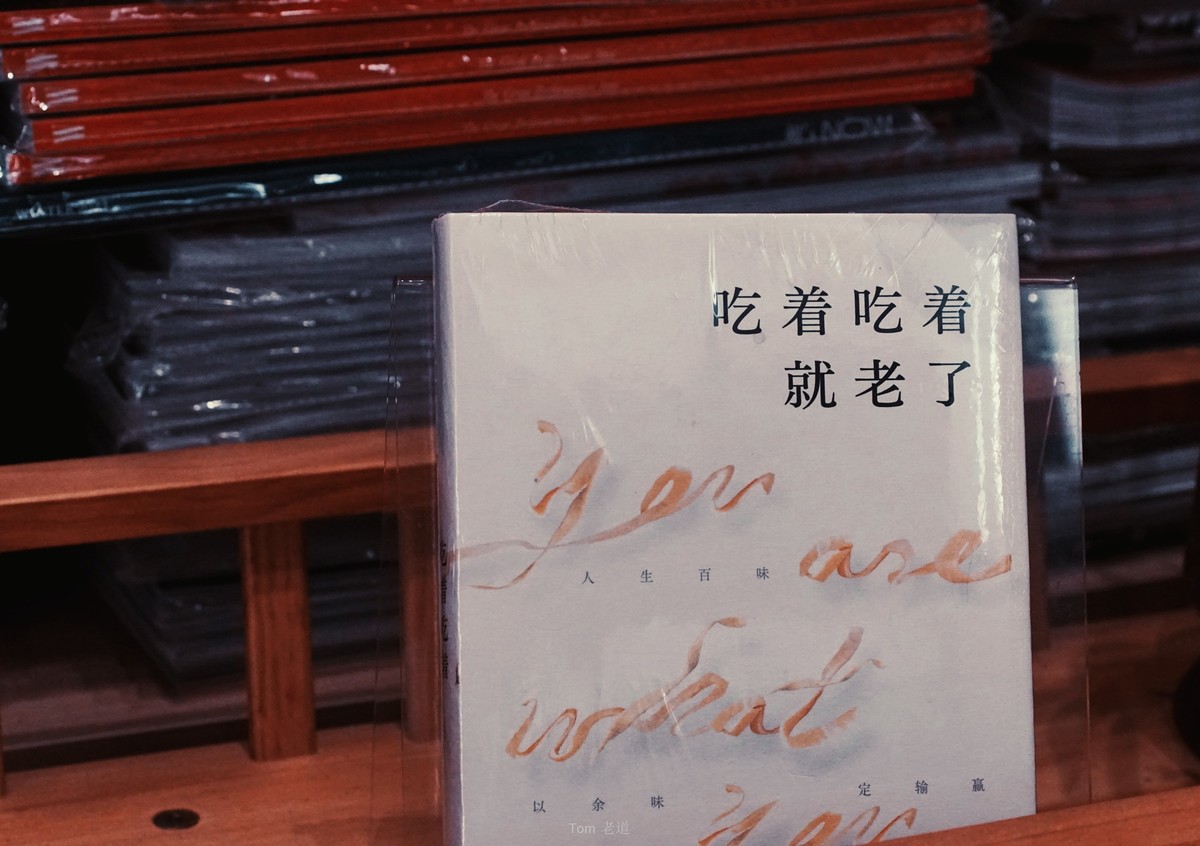 吃着吃着
就老了
you
are
人生百味
what
以余味
定输赢
you
Tom 老道
NOW